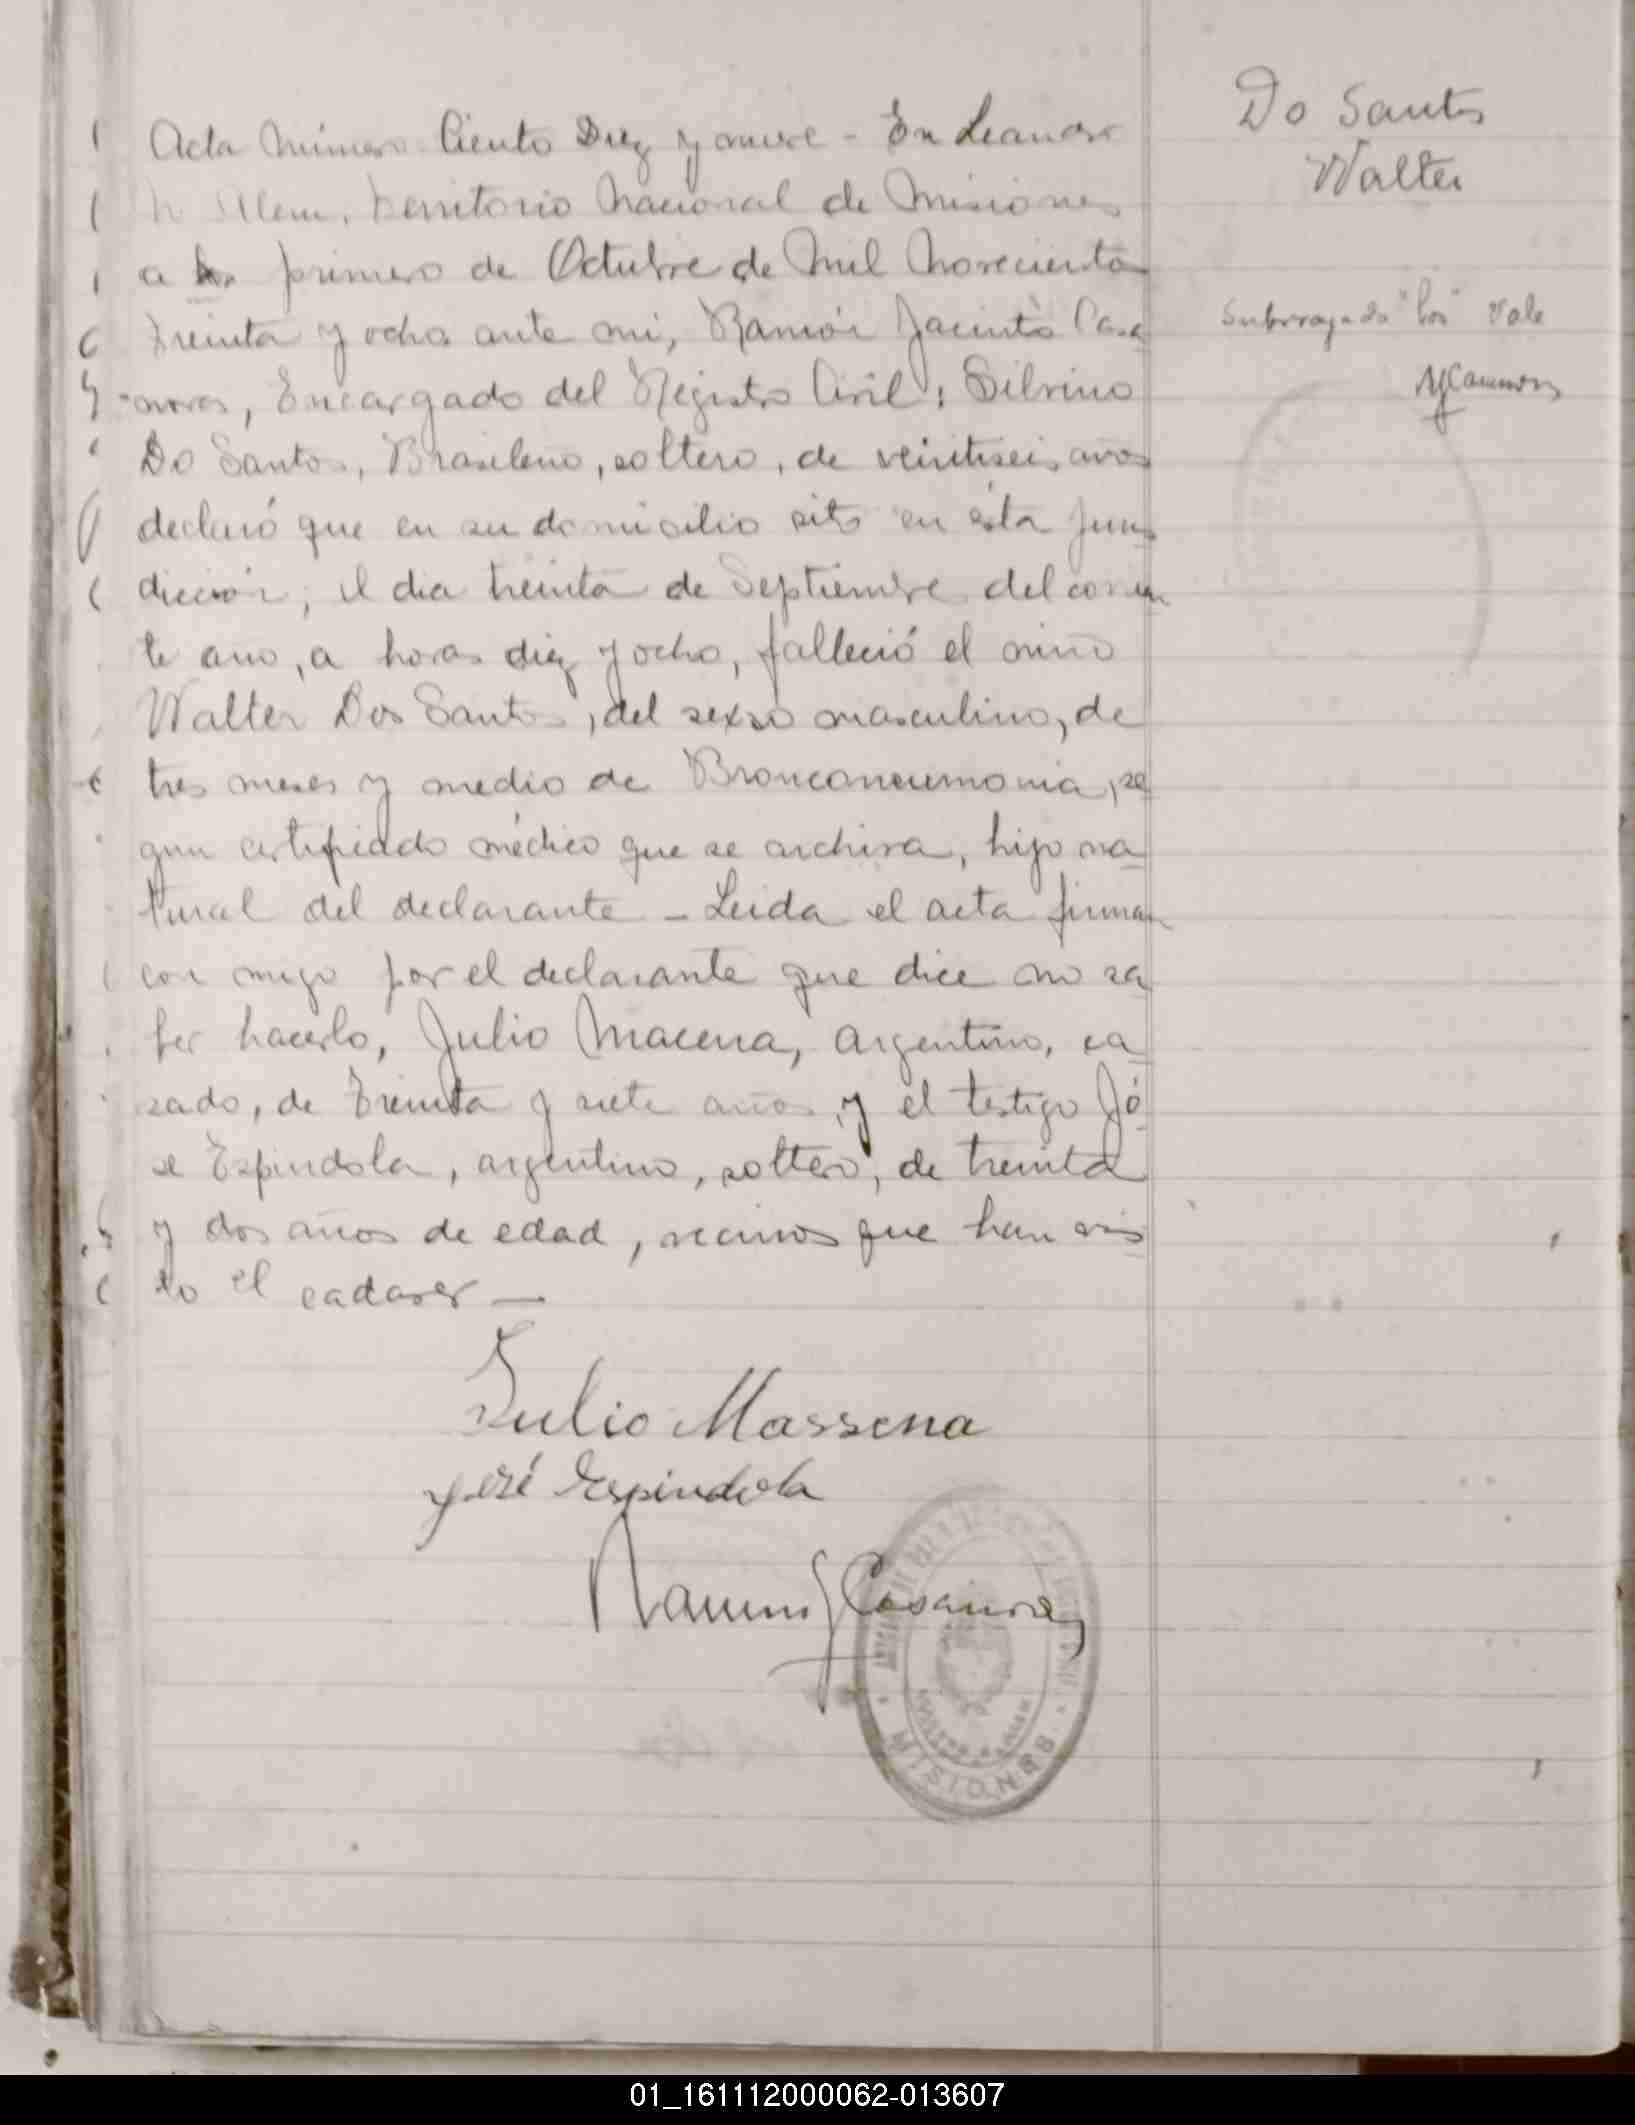 Do Santos
Walter
Acta Número Ciento Diez y nueve - En Leandro
N. Alem, territorio Nacional de Misiones
a los primero de Octubre de Mil Novecientos
treinta y ocho ante mi, Ramón Jacinto Casa
novas, Encargado del Registro Civil; Silvino
Do Santos, Brasileño, soltero, de veintiseis años
declaró que en su domicilio sito en ésta juris
dicción, el dia treinta de Septiembre del corrien
te año, a horas diez y ocho, falleció el niño
Walter Dos Santos, del sexso masculino, de
tres meses y medio de Bronconeumonia, se
gun certificado médico que se archiva, hijo na
tural del declarante - Leida el acta firman
con migo por el declarante que dice no sa
ber hacerlo, Julio Macena, argentino, ca
sado, de treinta y siete años, y el testigo Jó
se Espindola, argentino, soltero, de treinta
y dos años de edad, vecinos que han vis
to el cadaver —
Subrrayado "los" Vale
Julio Massena
José Espindola
Ramón J Casanovas
MISIONES
01_161112000062-013607